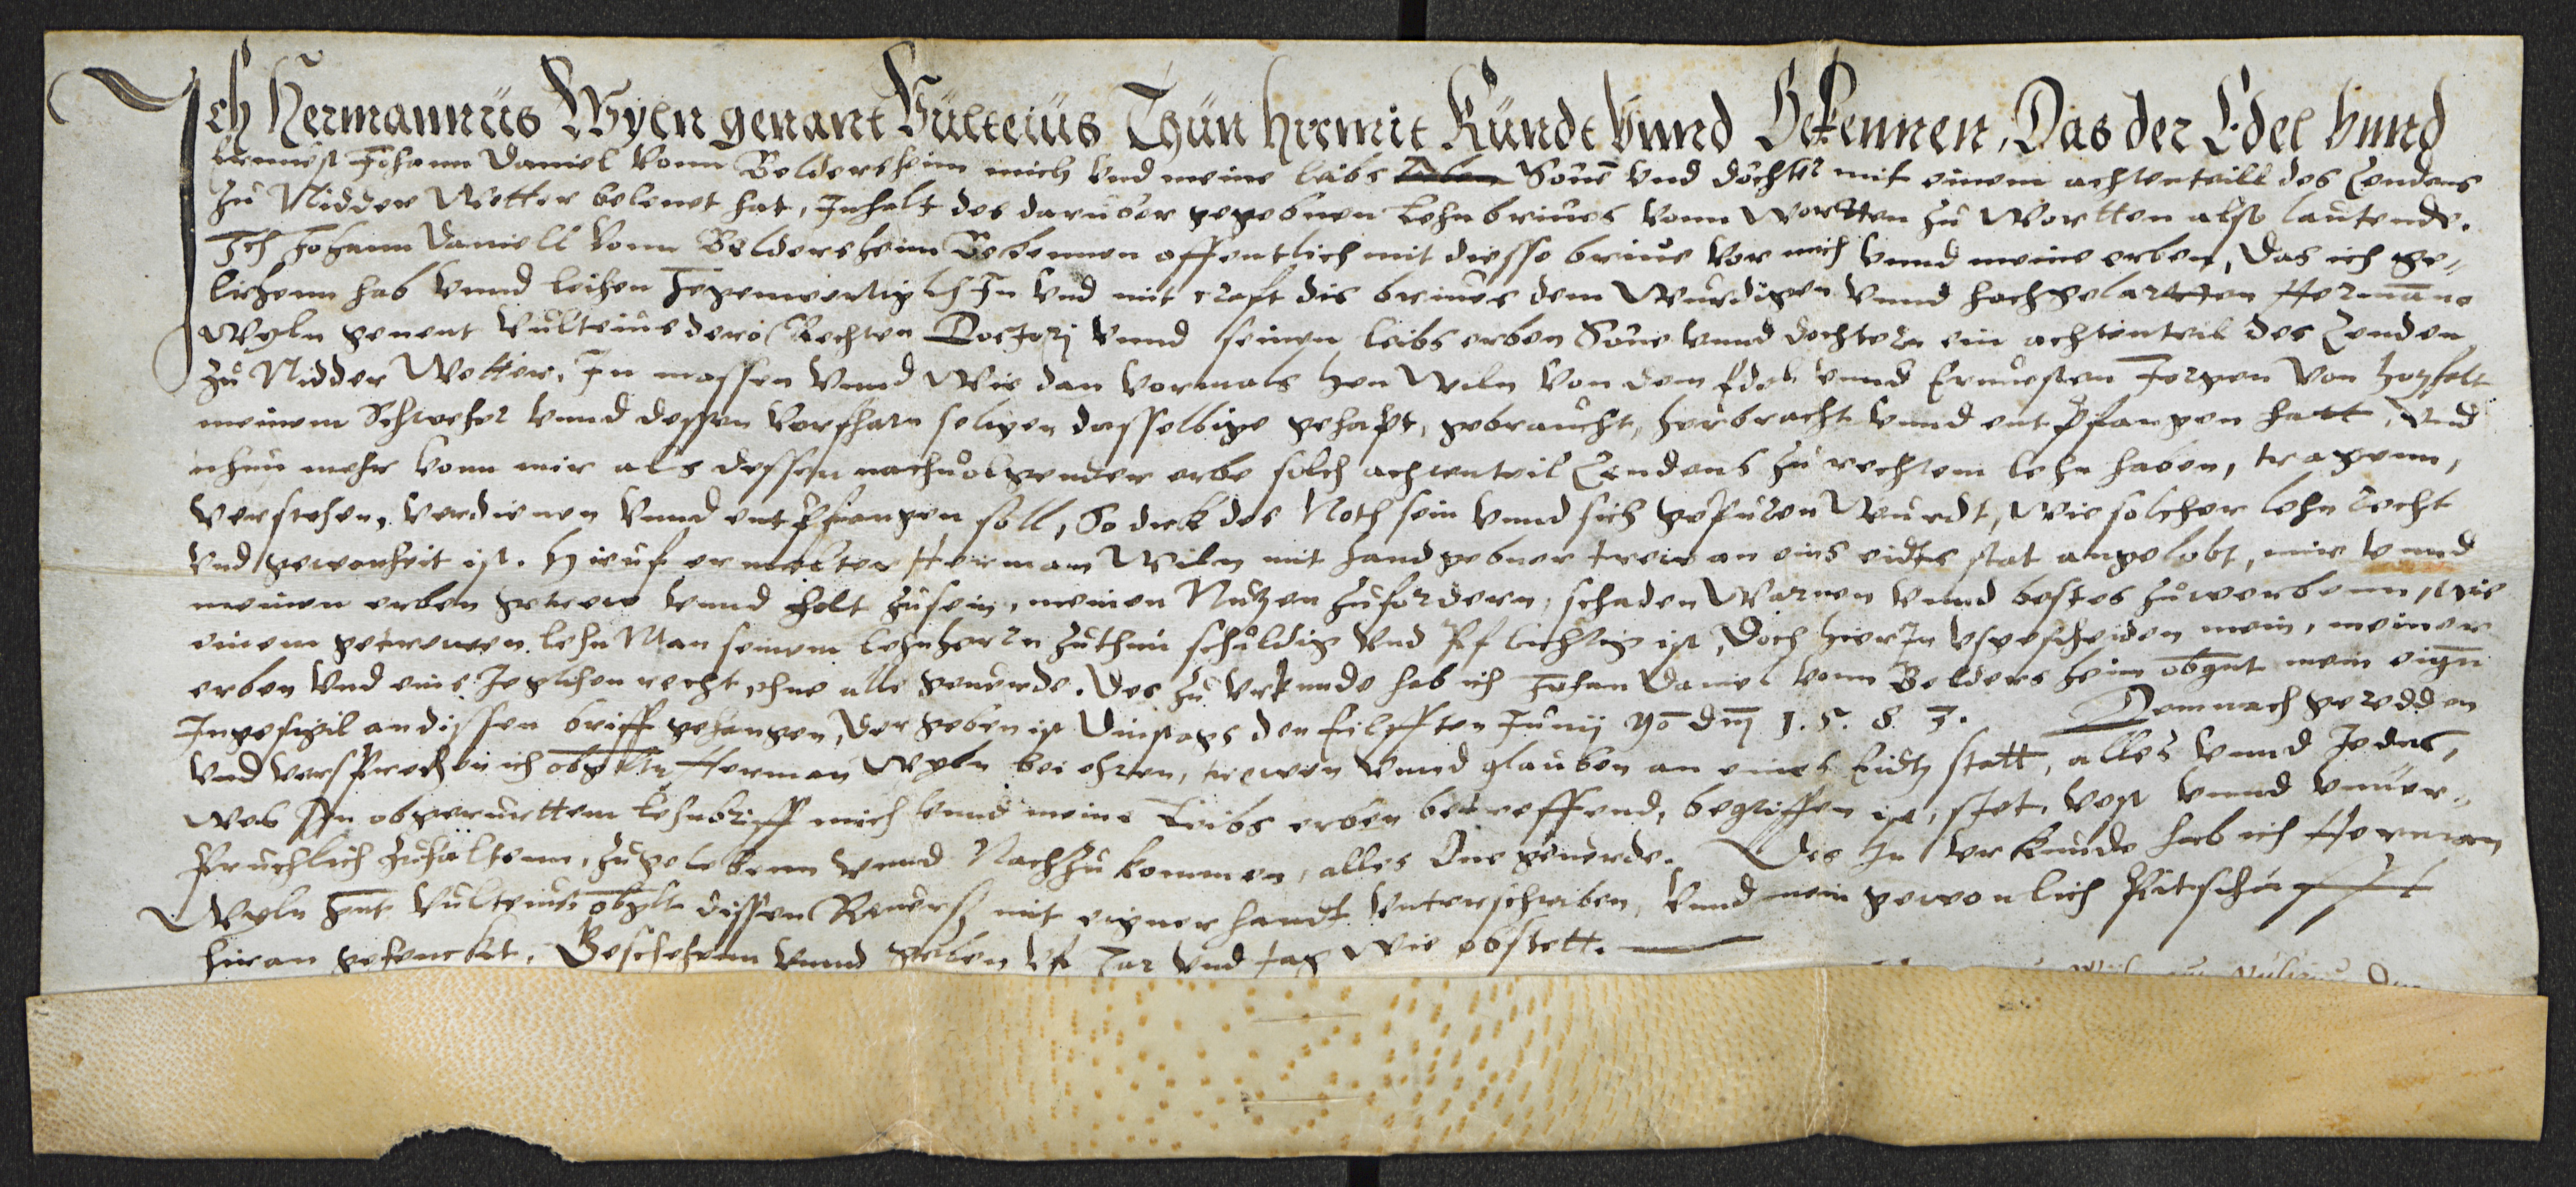 Ich Hermannus Wyln genant Vulteius Thun hiemit Kundt vnnd Bekennen, Das der Edel vnnd
vennest Johann Daniel vonn Beldersheim mich vnd meine leibs Söne vnd dochter mit einem achtenteill des Zendens
zu Nidder Wetter belenet hat, Inhalt des daruber gegebnen Lehnbriues vonn Wortten zu Wortten also lautende.
Ich Johann Daniell vonn Beldersheim Bekennen offentlich mit diesse briue vor mich vnnd meine erben, das ich ge-
liehenn hab vnnd leihen Jegenwertiglich In vnd mit craft dis briues dem Wurdigen vnnd hochgelartten Hermanno
Wyln genent Vulteius dero Rechten Doctorj vnnd seinen leibs erben Söne vnnd dochtern ein achtenteil des Zenden
zu Nidder Wetter, In massen vnnd Wie dan vormals Hen Wiln von dem Edel vnnd Ernuesten Jorgen von Hotzfelt
meinem Schweher vnnd dessen vorfharn seligen dasselbige gehapt, gebraucht, herbracht vnnd entpfangen hatt, vnd
nhun mehr vonn mir als dessen nachuolgender erbe solch achtenteil Zendens zu rechtem lehn haben, tragenn,
verstehen, verdienen vnnd entpfangen soll, So dick des Noth sein vnnd sich gepuren Wurdt, Wie solcher lehn recht
vnd gewonheit ist. Hieruf ermelter Herman Wiln mit handgebner trew an eins eidts stat angelobt, mir vnnd
meinen erben getrew vnnd holt zusein, meinen Nutzen zufordern, schaden Warnen vnnd bestes zuwerbenn, Wie
einem getrewen lehn Man seinem lehnherrn zuthun schuldig vnd Pflichtig ist, Doch hierIn vsgescheiden mein, meiner
erben vnd eins Jeglichen recht, ohne alle geuerde. Des zu vrkunde hab ich Johan Daniel vonn Beldersheim obgnt mein eign
Ingesigil an dissen briff gehangen, Der geben ist Dinstags den Eilfften Junij Ao dnj 1. 5. 8. 3. Demnach geredden
vnd versprechen ich obgltr Herman Wyln bei ehren, trewen vnnd glauben an eines Eidts statt, alles vnnd Jedes,
Wes In obgerurttem Lehnbriff mich vnnd meine Leibs erben betreffend, begriffen ist, stet, vest vnnd vnuer-
bruchlich zuhaltenn, zugelebenn vnnd Nachzukommen, alles One geuerde. Des zu vrkunde hab ich Herman
Wyln gnt Vulteius obglt dissen Reuerß mit eigner handt vnterschreiben, vnnd mein gewonlich Pitschafft
hiran gehenckt, Geschehenn vnnd geben vf Jar vnd tag Wie obstett.